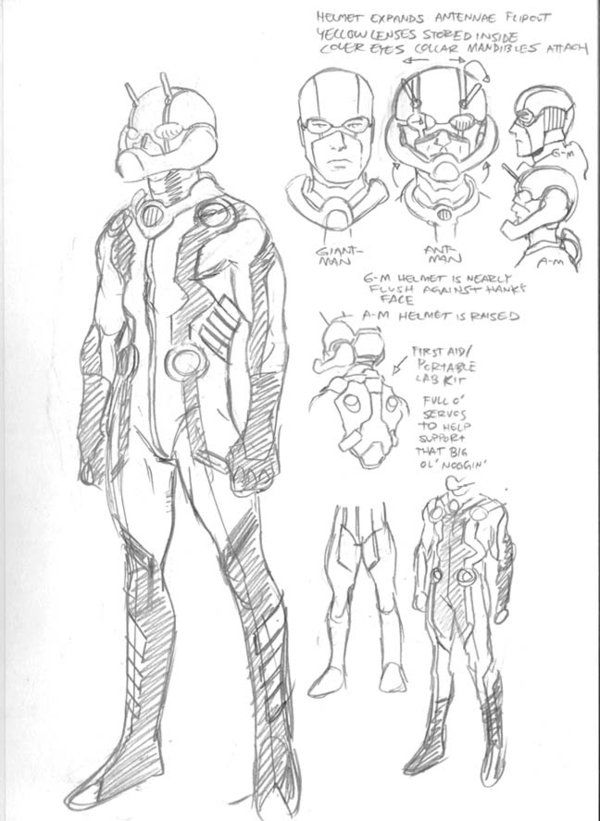 HELMET EXPANDS ANTENNAE FLIPOUT
YELLOW LENSES STORED INSIDE
COVER EYES COLLAR MANDIBLES ATTACH
G-M
GIANT-
MAN
ANT-
MAN
A-M
G-M HELMET IS NEARLY
FLUSH AGAINST HANK'S
FACE
A-M HELMET IS RAISED
FIRST AID/
PORTABLE
LAB KIT
FULL O'
SERVOS
TO HELP
SUPPORT
THAT BIG
OL' NOGGIN'